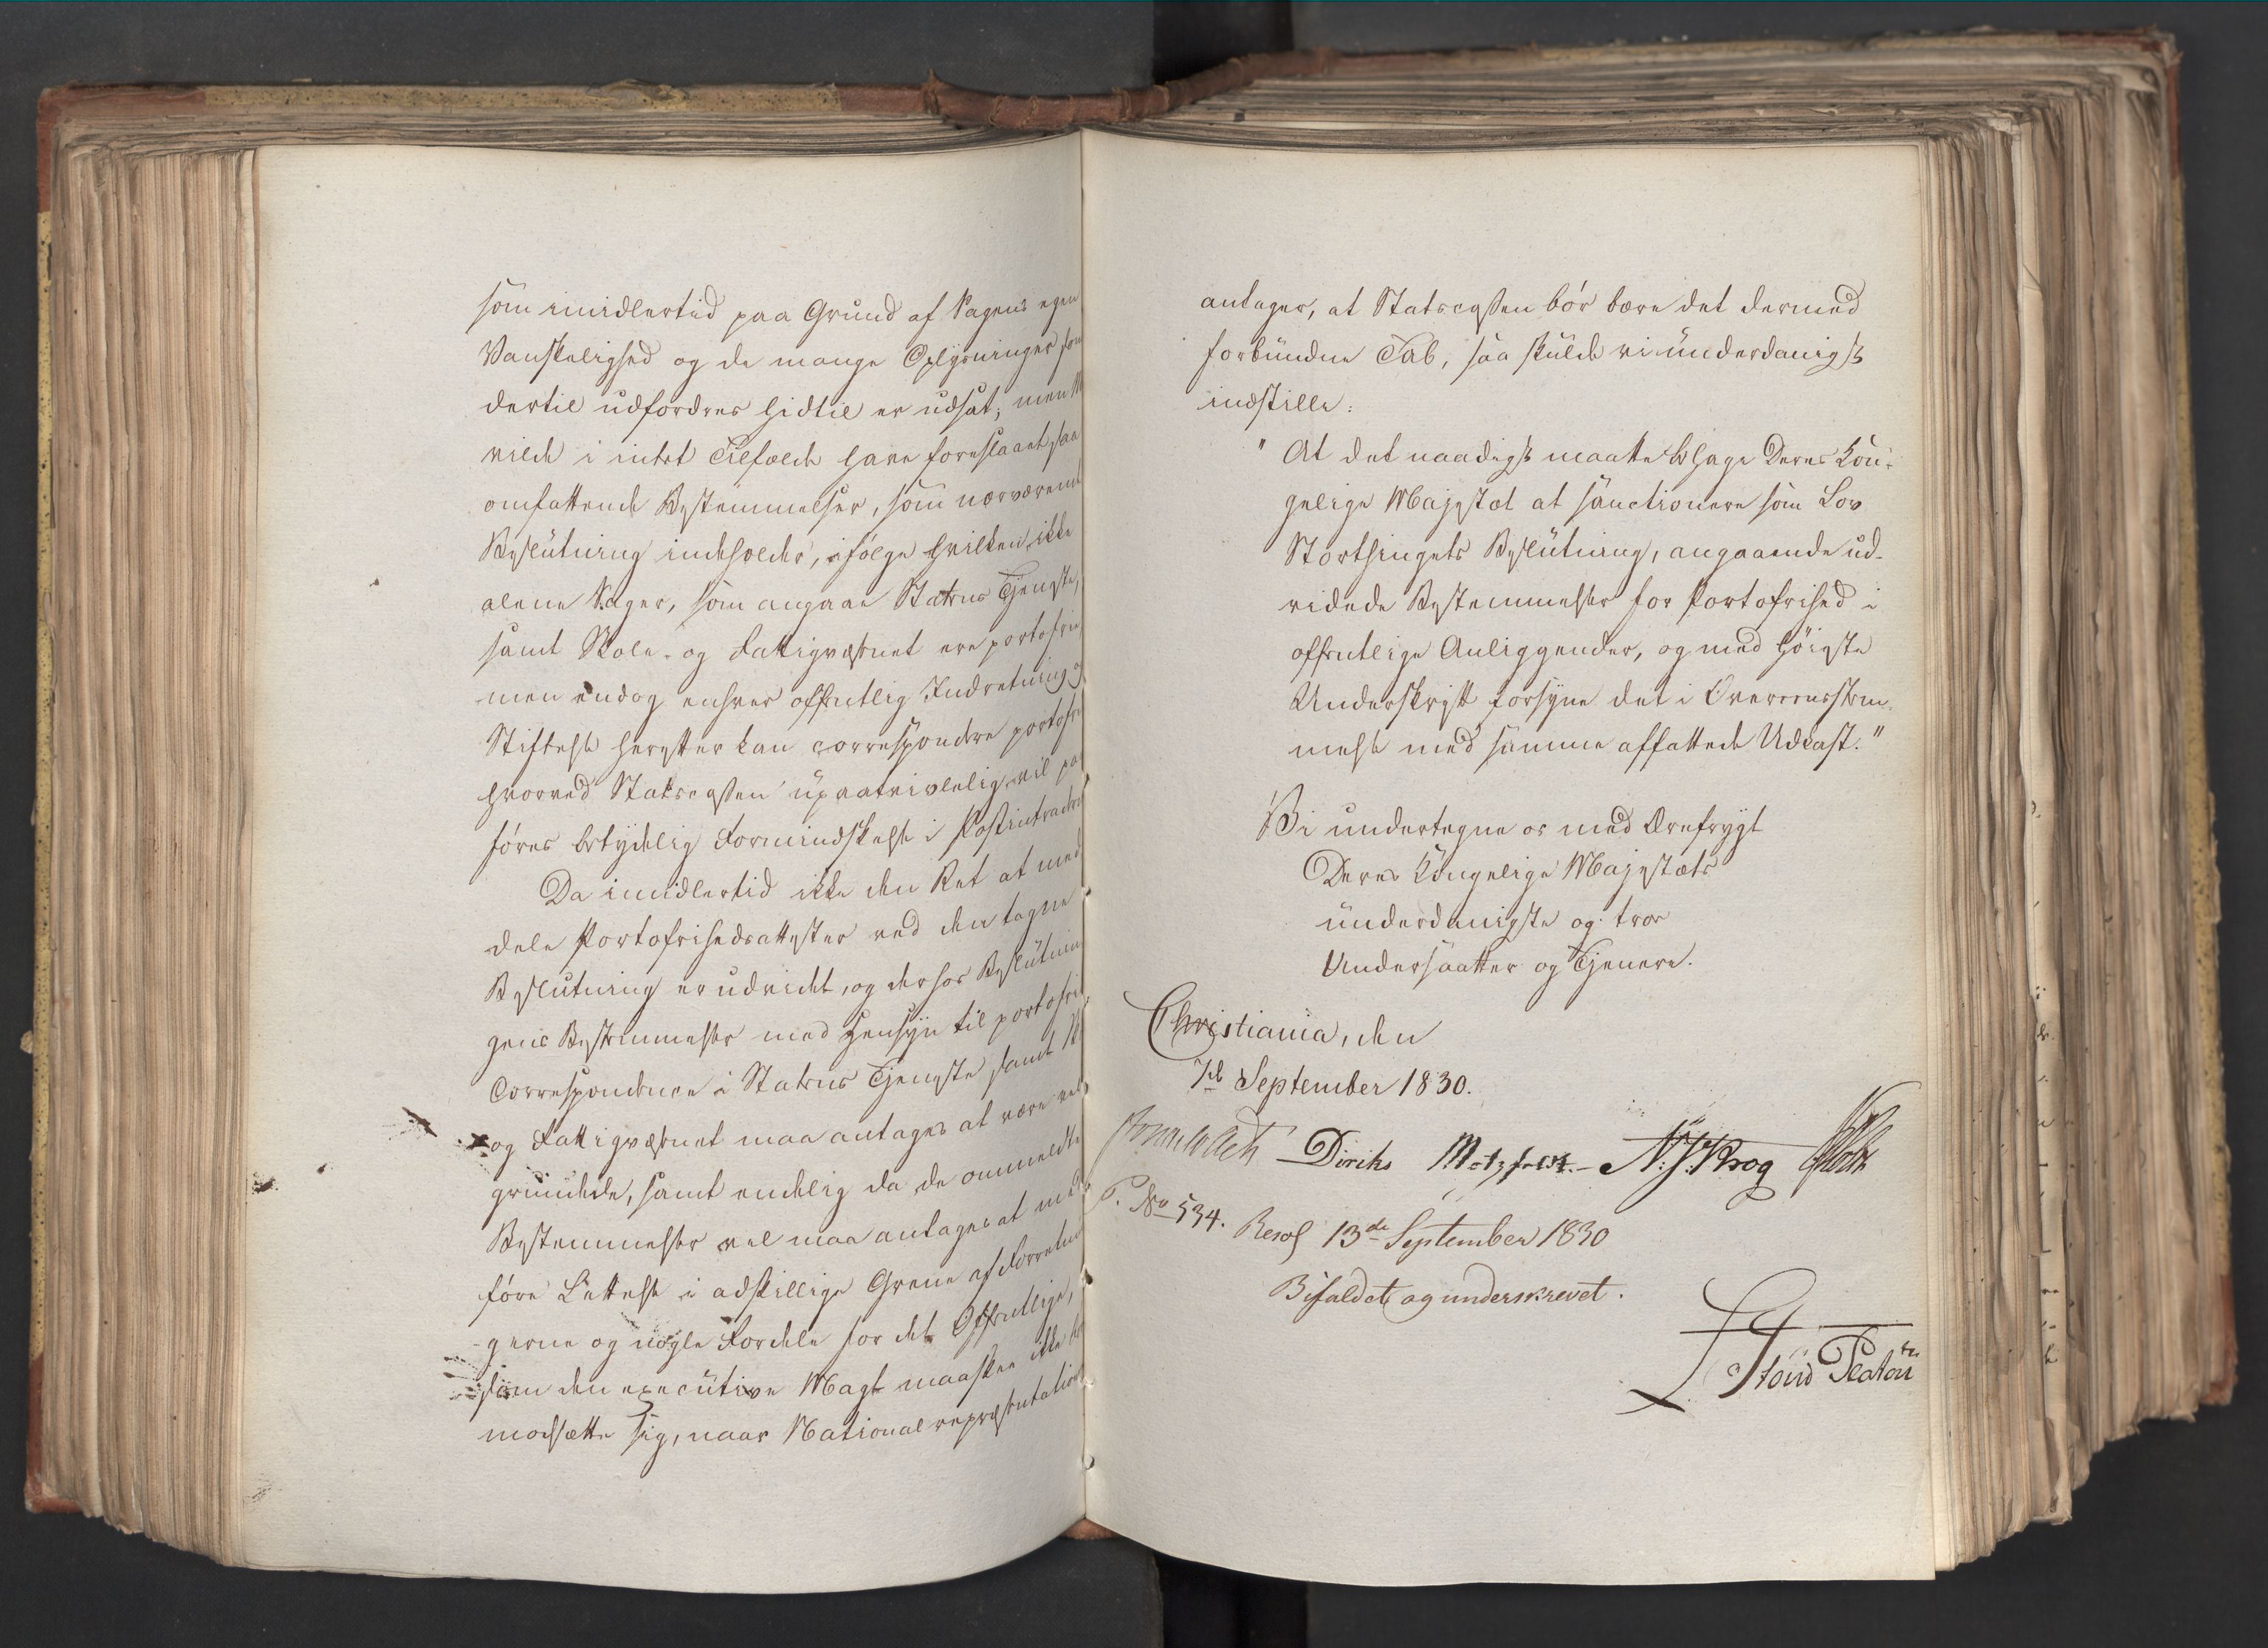 som imidlertid paa Grund af Sagens egen
Vanskelighed og de mange Oplysninger som
dertil udfordres hidtil er udsat; men
vilde i intet Tilfælde have foreslaaet saa
omfattende Bestemmelser, som nærværende
Beslutning indeholder, ifølge hvilken ikke
alene Sager, som angaae Statens Tjeneste,
samt Skole- og Fattigvæsenet ere portofrie
men endog enhver offentlig Indretning og
Stiftelse herefter kan correspondere portofrit
hvorved Statscassen upaatvivlelig vil paa
føres betydelig Formindskelse i Postintraderne
Da imidlertid ikke den Ret at med
dele Portofrihedsattester ved den tagne
Beslutning er udvidet, og derhos Beslutnin
gens Bestemmelser med Hensyn til portofri
Correspondence i Statens Tjeneste samt
og Fattigvæsenet maa antages at være vel
grundede, samt endelig da de ommeldte
Bestemmelser vel maa antages at med
føre Lettelse i adskillige Grene af Forretnin
gerne og nogle Fordele for det Offentlige,
som den executive Magt maaskee ikke bør
modsætte sig, naar Nationalrepræsentationen
antager, at Statscassen bør bære det dermed
forbundne Tab, saa skulde vi underdanigst
indstille:
"At det naadigst maatte behage Deres Kon-
gelige Majestæt at sanctionere som Lov
Storthingets Beslutning, angaaende ud-
videde Bestemmelser for Portofrihed i
offentlige Anliggender, og med høieste
Underskrift forsyne det i Overeensstem-
melse med samme affattede Udkast."
Vi undertegne os med Ærefrygt
Deres Kongelige Majestæts
underdanigste og troe
Undersaatter og Tjenere.
Christiania, den
7de September 1830.
Diriks Motzfeldt. N. J. Krog Holst
P. No 534.
Resol 13de September 1830
Bifaldet og underskrevet.